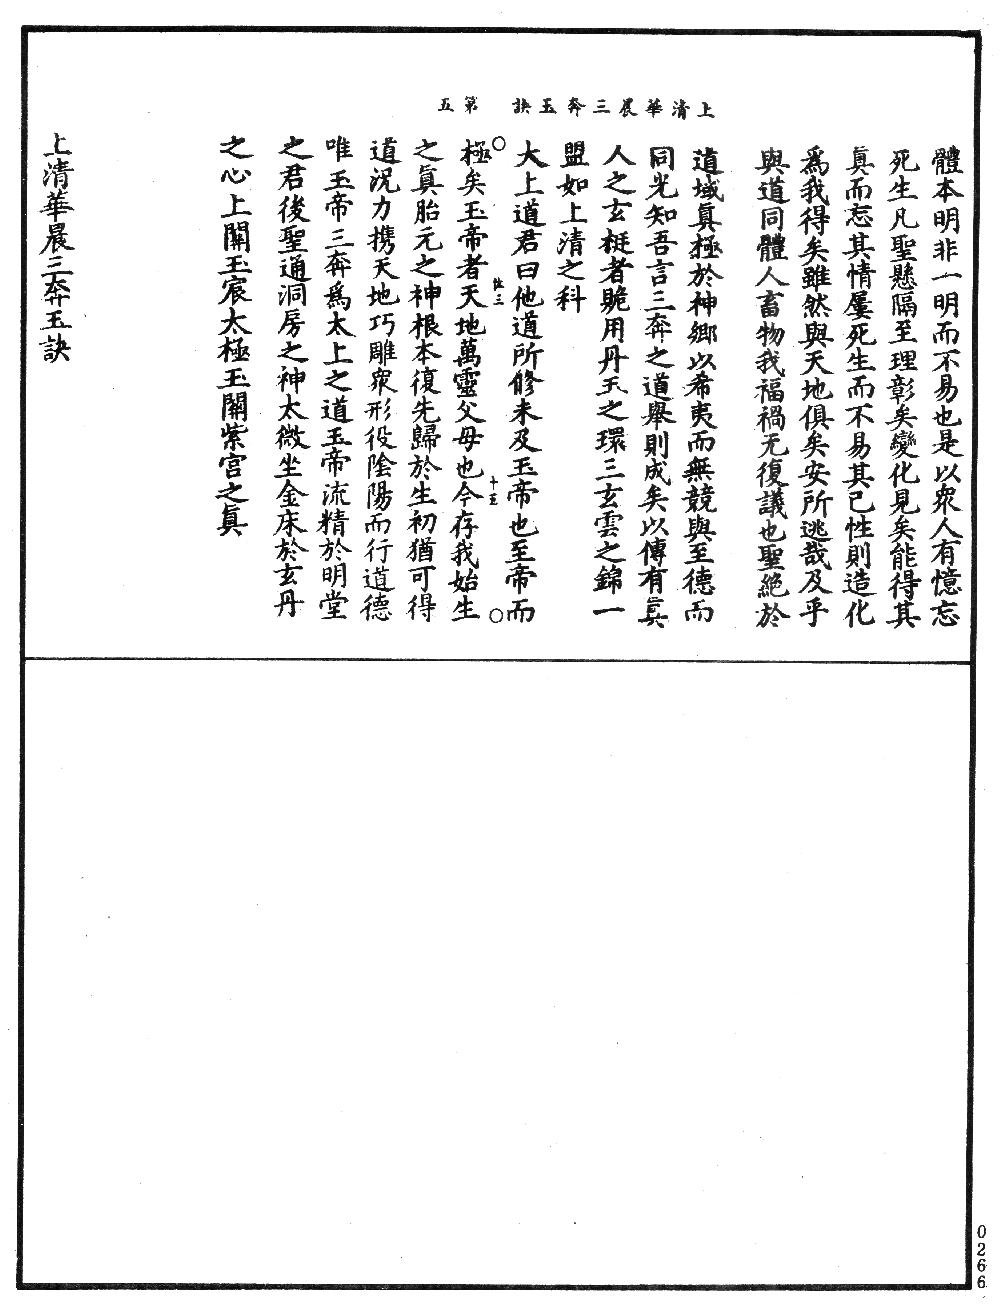 上清華晨三奔玉訣　第五
體本明非一明而不易也是以衆人有憶忘
死生凡聖懸隔至理彰矣變化見矣能得其
真而忘其情屢死生而不易其己性則造化
爲我得矣雖然與天地俱矣安所逃哉及乎
與道同體人畜物我福禍无復議也聖絕於
道域真極於神鄉以希夷而無競與至德而
同光知吾言三奔之道舉則成矣以傳有真
人之玄挺者賹用丹玉之環三玄雲之錦一
盟如上清之科
大上道君曰他道所修未及玉帝也至帝而
○　陸三　十五　○
極矣玉帝者天地萬靈父母也今存我始生
之真胎元之神根本復先歸於生初猶可得
道況力携天地巧雕衆形役陰陽而行道德
唯玉帝三奔爲太上之道玉帝流精於明堂
之君後聖通洞房之神太微坐金床於玄丹
之心上關玉宸太極玉關紫宮之真
上清華晨三奔玉訣
0266